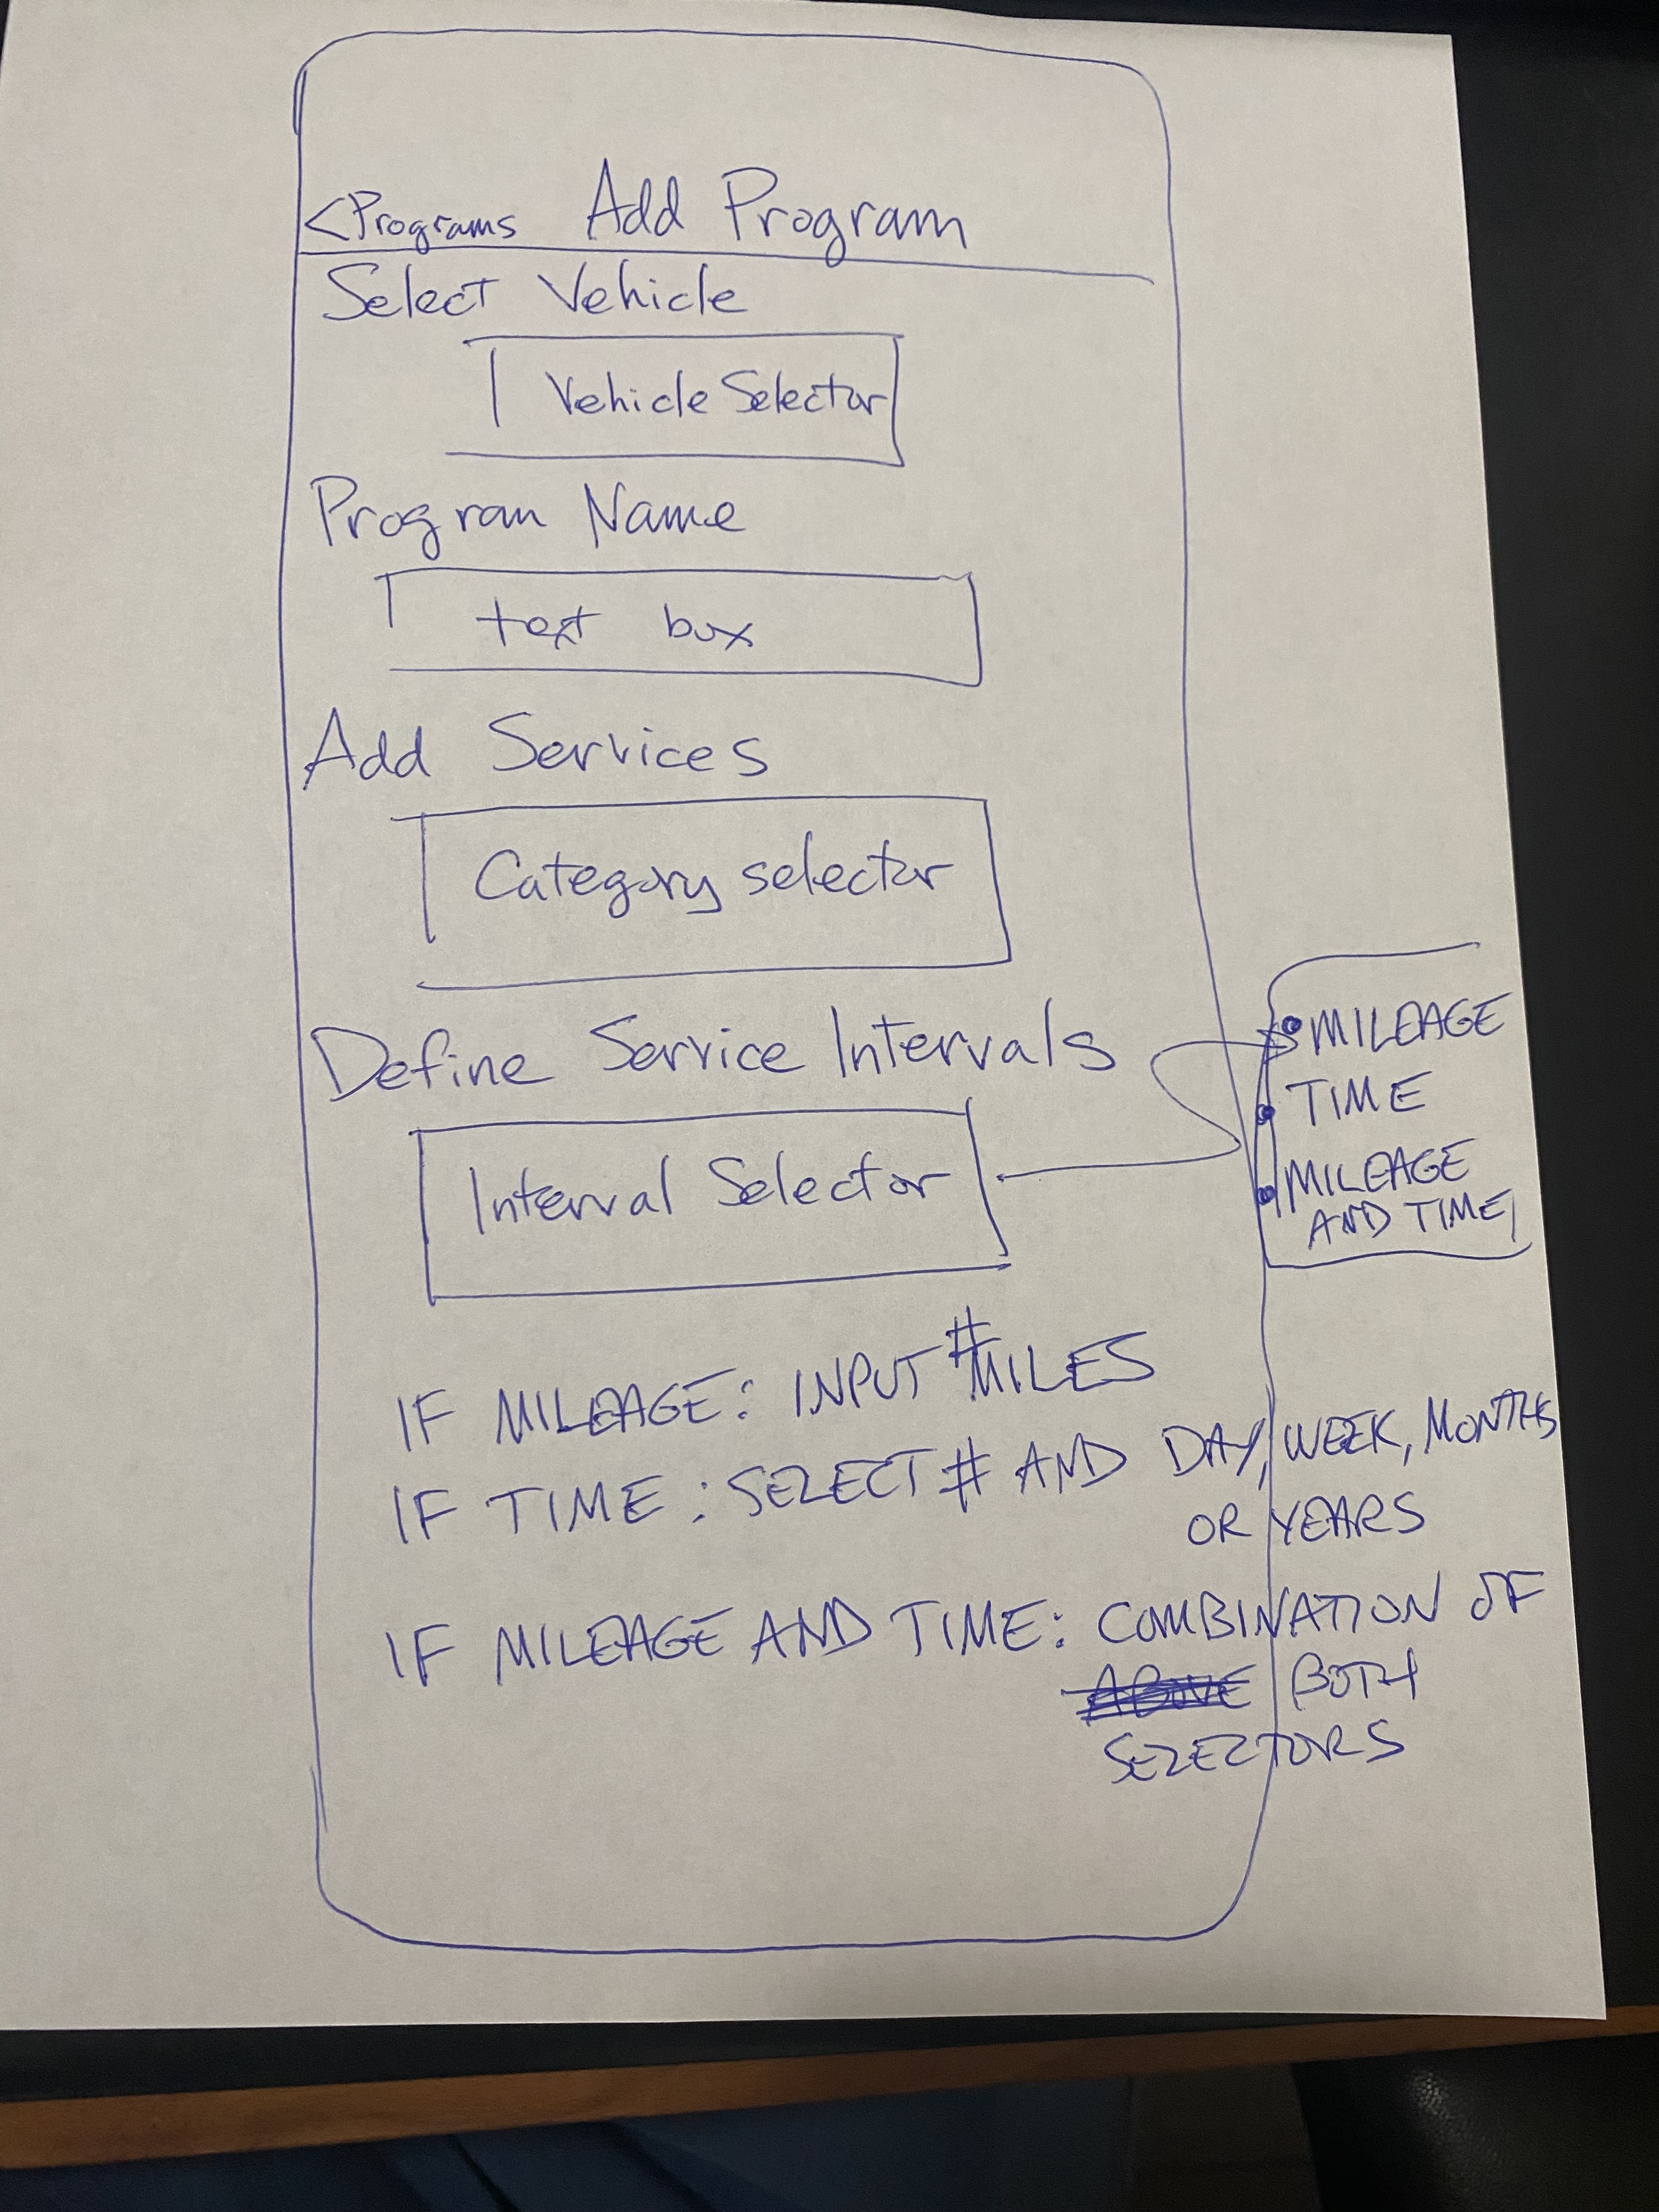 <Programs Add Program
Select Vehicle
Vehicle Selector
Program Name
text box
Add Services
Category selector
Define Service Intervals
Interval Selector
• MILEAGE
• TIME
• MILEAGE
AND TIME
IF MILEAGE: INPUT # MILES
IF TIME: SELECT # AND DAY, WEEK, MONTHS
OR YEARS
IF MILEAGE AND TIME: COMBINATION OF
ABOVE BOTH
SELECTORS